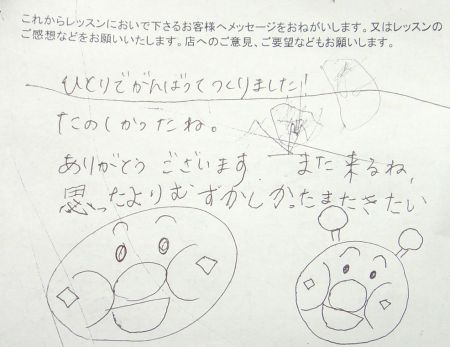 これからレッスンにおいで下さるお客様へメッセージをおねがいします。又はレッスンの
ご感想などをお願いいたします。店へのご意見、ご要望などもお願いします。
ひとりでがんばってつくりました!
たのしかったね。
ありがとう ございます また来るね,
思ったよりむずかしかったまたきたい